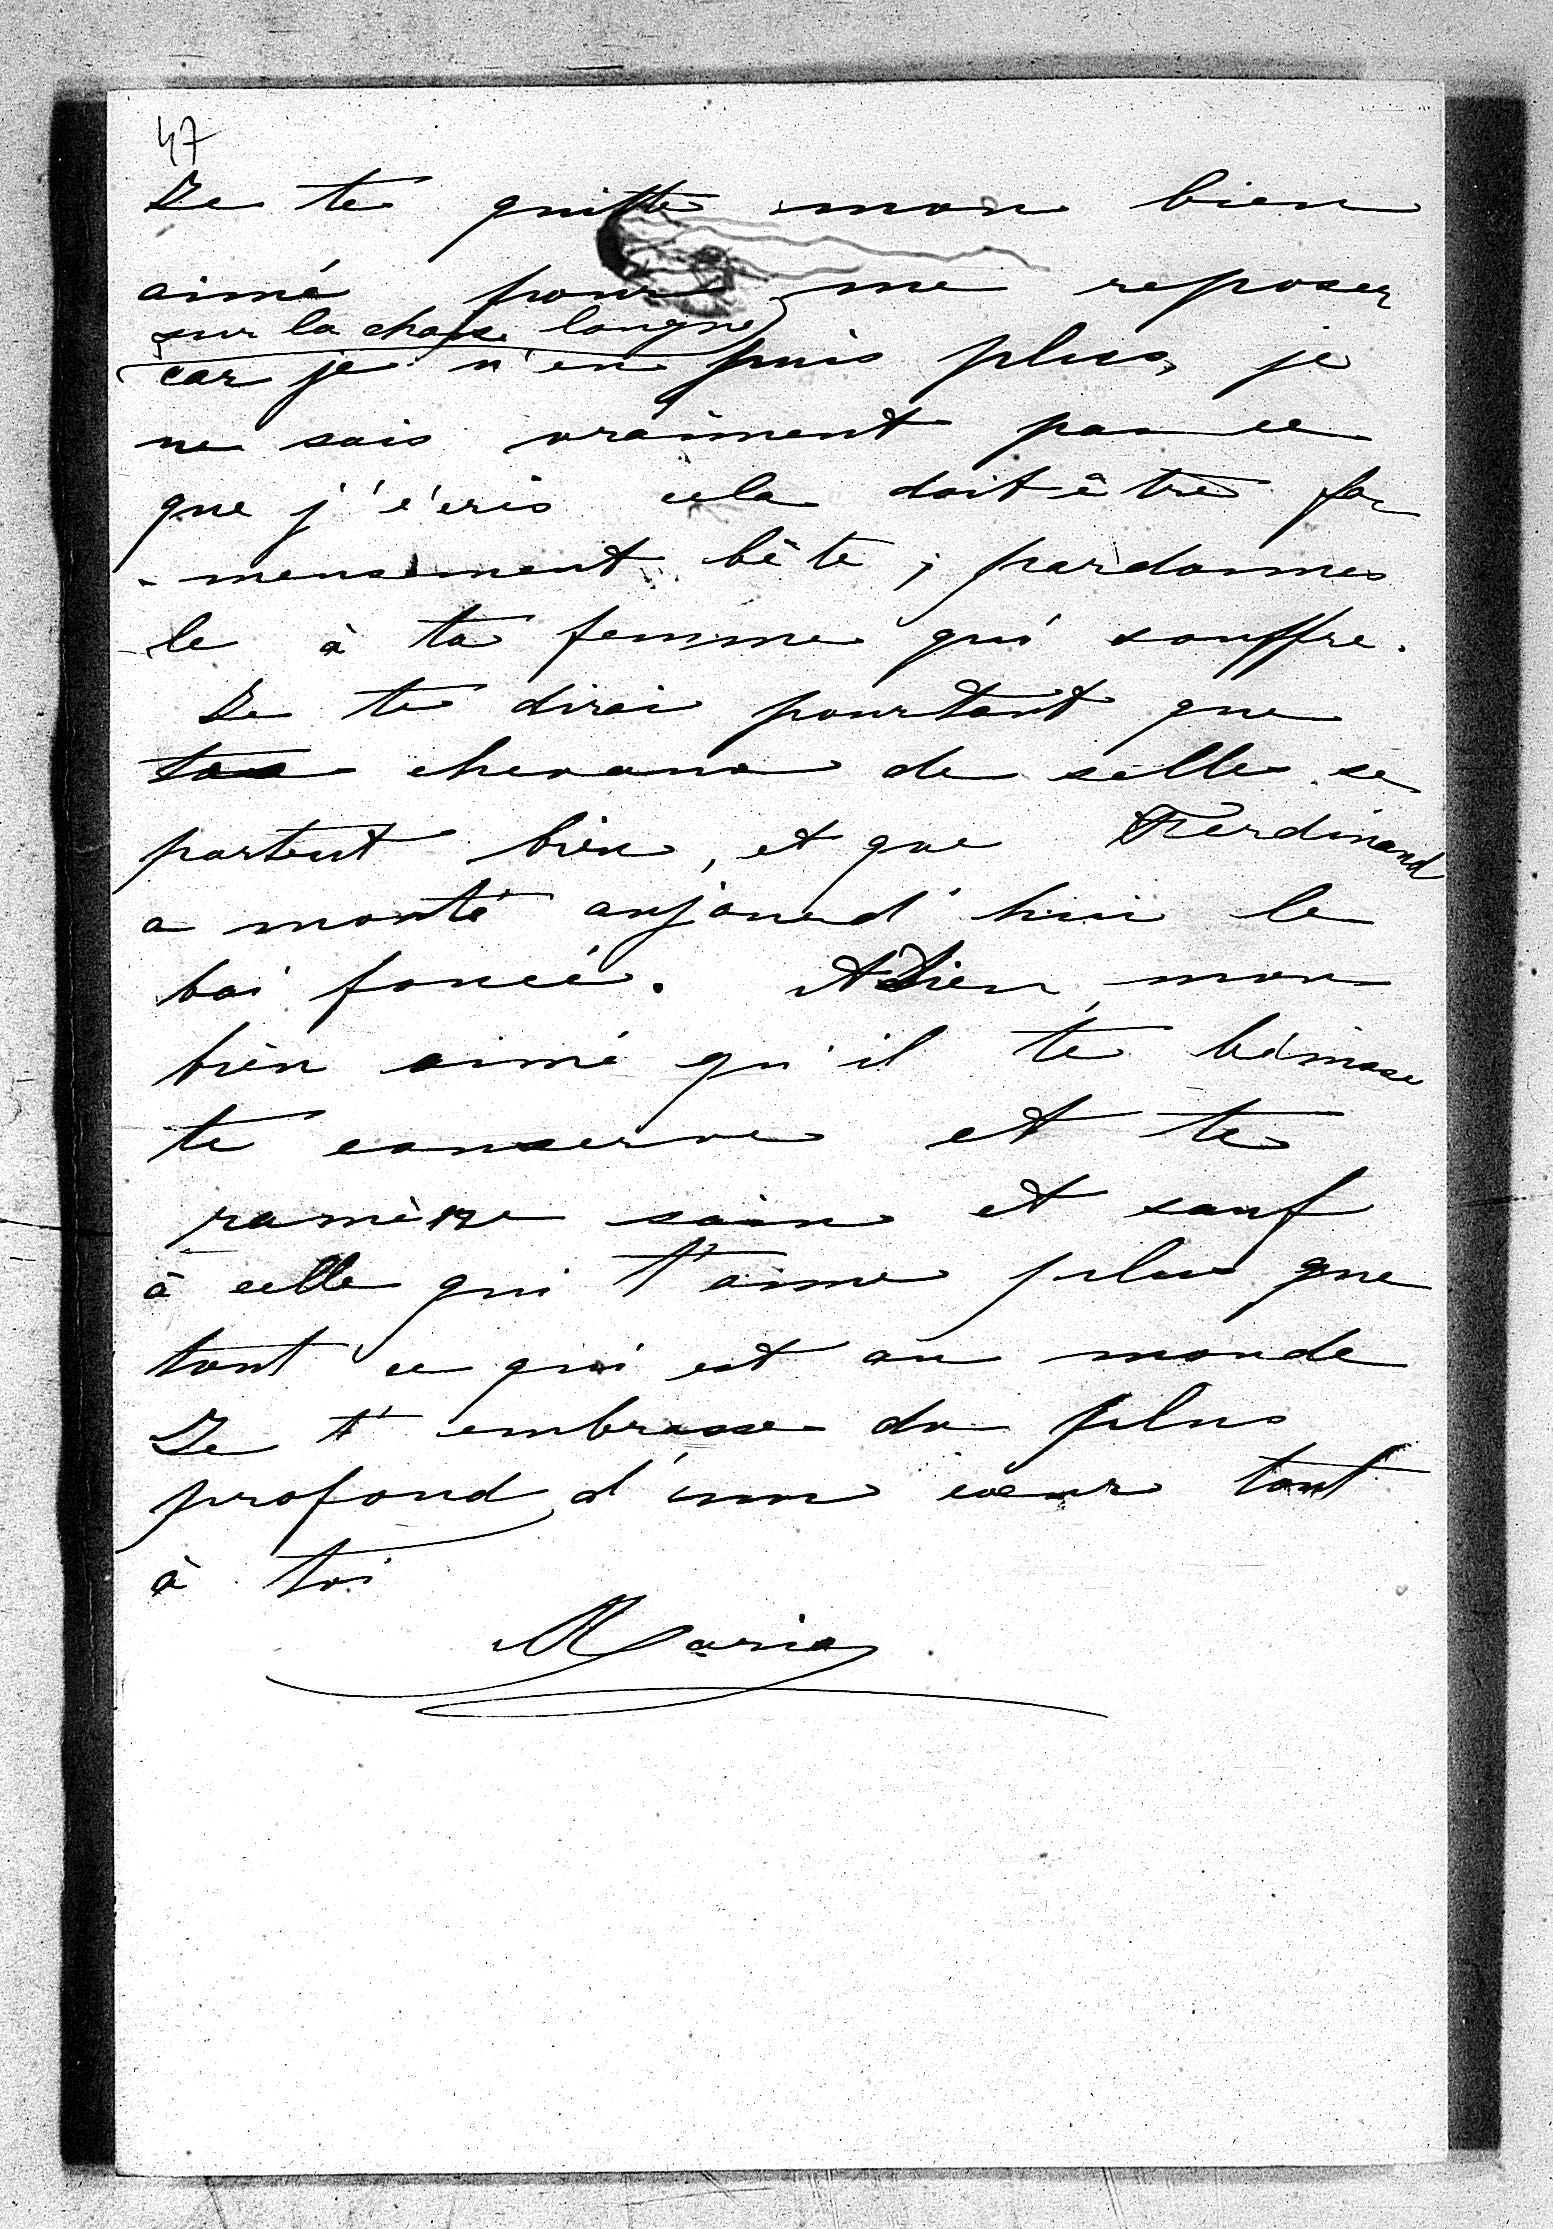 47
Je te quitte mon bien
aimé pour me reposer
sur la chaise longue
car je n'en puis plus, je
ne sais vraiment pas ce
que j'écris cela doit être fa
-meusement bête ; pardonnes
-le à ta femme qui souffre.
Je te dirai pourtant que
tes chevaux de selle se
portent bien, et que Ferdinand
a monté aujourd'hui le
bai foncé. Adieu, mon
bien aimé qu'il te bénisse
te conserve et te
ramène sain et sauf
à celle qui t'aime plus que
tout ce qui est au monde
Je t'embrasse du plus
profond d'un cœur tout
à toi
Marie